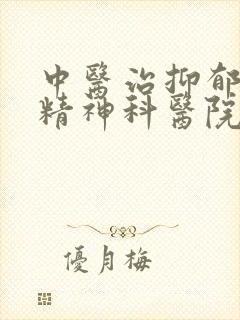 中醫治抑郁
精神科醫院
優月梅